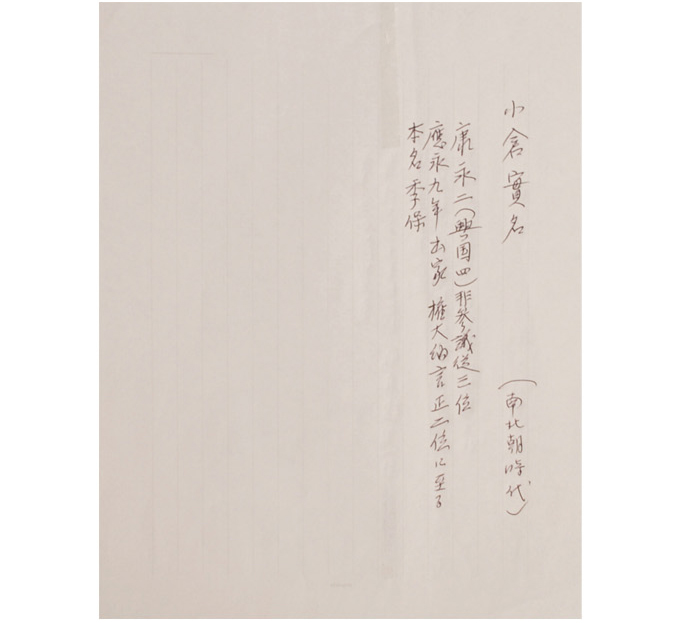 小倉實名 (南北朝時代)
康永二(興国四)非参議従三位
應永九年出家 権大納言正二位に至る
本名季保